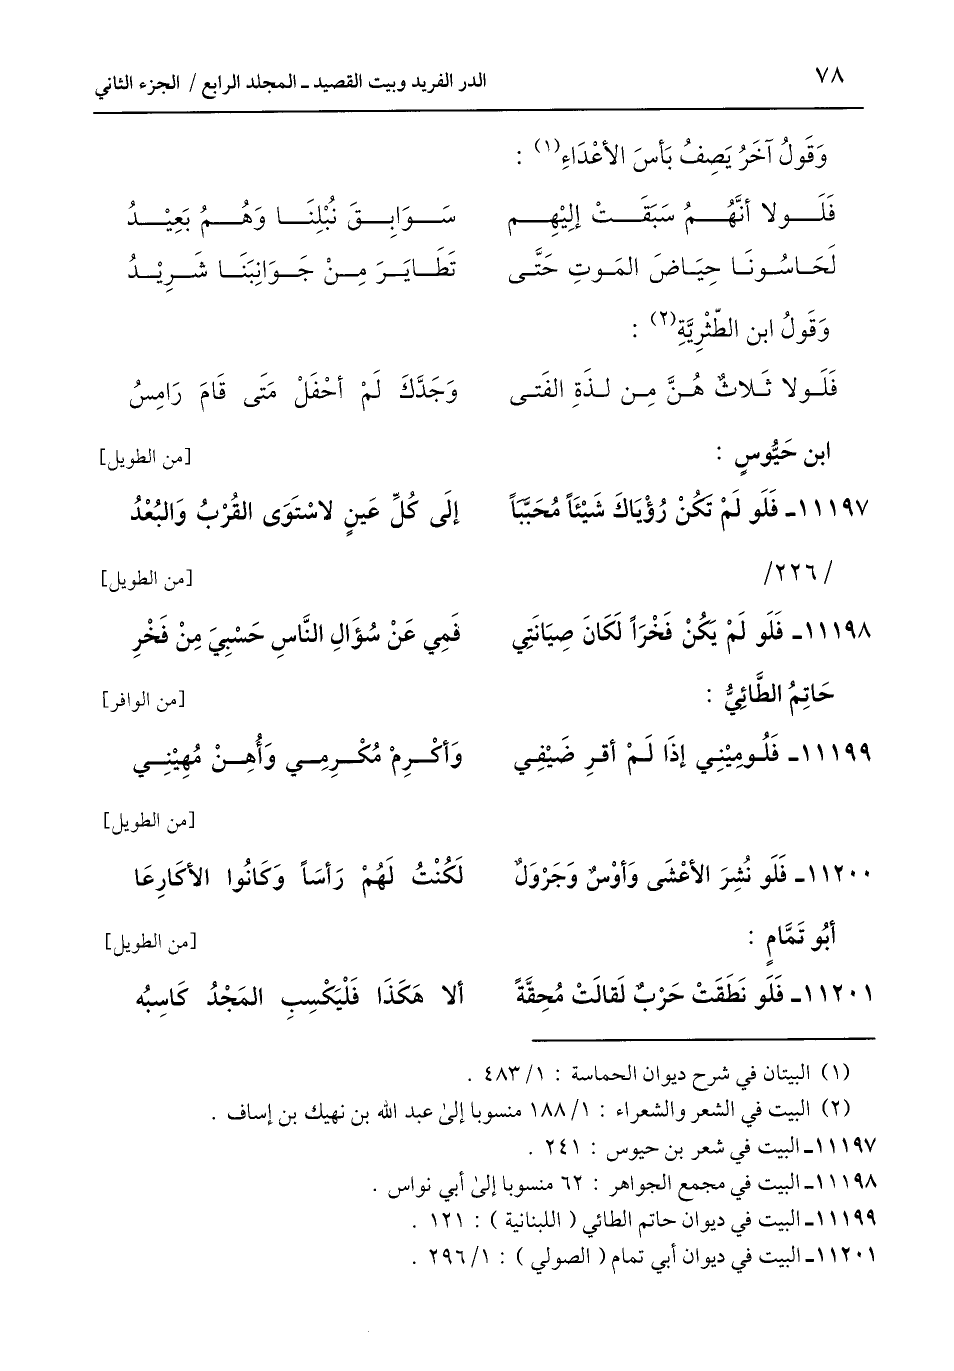 ٧٨ الدر الفريد وبيت القصيد ـ المجلد الرابع / الجزء الثاني
وَقَولُ آخَرُ يَصِفُ بَأسَ الأعْدَاءِ(١) :
فَلَـــولا أنَّهُـــمُ سَبَقَـــتْ إلَيْهِـــم سَـــوَابِـــقَ نُبْلِنَـــا وَهُـــمُ بَعِيْـــدُ
لَحَاسُـونَـا حِيَـاضَ المَـوتِ حَتَّـى تَطَـايَـرَ مِـنْ جَـوَانِبَنَـا شَـرِيْـدُ
وَقَولُ ابن الطّثْرِيَّةِ(٢) :
فَلَـولا ثَـلاثٌ هُـنَّ مِـن لـذَةِ الفَتـى وَجَدَّكَ لَمْ أحْفَلْ مَتَى قَامَ رَامِسُ
ابن حَيُّوسٍ : [من الطويل]
١١١٩٧ـ فَلَو لَمْ تَكُنْ رُؤْيَاكَ شَيْئَاً مُحَبَّبَاً إلَى كُلِّ عَينٍ لاسْتَوَى القُرْبُ وَالبُعْدُ
/٢٢٦/ [من الطويل]
١١١٩٨ـ فَلَو لَمْ يَكُنْ فَخْرَاً لَكَانَ صِيَانَتِي فَمِي عَنْ سُؤَالِ النَّاسِ حَسْبِيَ مِنْ فَخْرِ
حَاتِمُ الطَّائِيُّ : [من الوافر]
١١١٩٩ـ فَلُـومِيْنِـي إذَا لَـمْ أقرِ ضَيْفِـي وَأكْـرِمْ مُكْـرِمِـي وَأُهِـنْ مُهِيْنِـي
[من الطويل]
١١٢٠٠ـ فَلَو نُشِرَ الأعْشَى وَأوْسٌ وَجَرْوَلٌ لَكُنْتُ لَهُمْ رَأسَاً وَكَانُوا الأكَارِعَا
أبُو تَمَّامٍ : [من الطويل]
١١٢٠١ـ فَلَو نَطَقَتْ حَرْبٌ لَقالَتْ مُحِقَّةً ألا هَكَذَا فَلْيَكْسِبِ المَجْدُ كَاسِبُه
(١) البيتان في شرح ديوان الحماسة : ١/ ٤٨٣ .
(٢) البيت في الشعر والشعراء : ١/ ١٨٨ منسوبا إلىٰ عبد الله بن نهيك بن إساف .
١١١٩٧ـ البيت في شعر بن حيوس : ٢٤١ .
١١١٩٨ـ البيت في مجمع الجواهر : ٦٢ منسوبا إلىٰ أبي نواس .
١١١٩٩ـ البيت في ديوان حاتم الطائي ( اللبنانية ) : ١٢١ .
١١٢٠١ـ البيت في ديوان أبي تمام ( الصولي ) : ١/ ٢٩٦ .